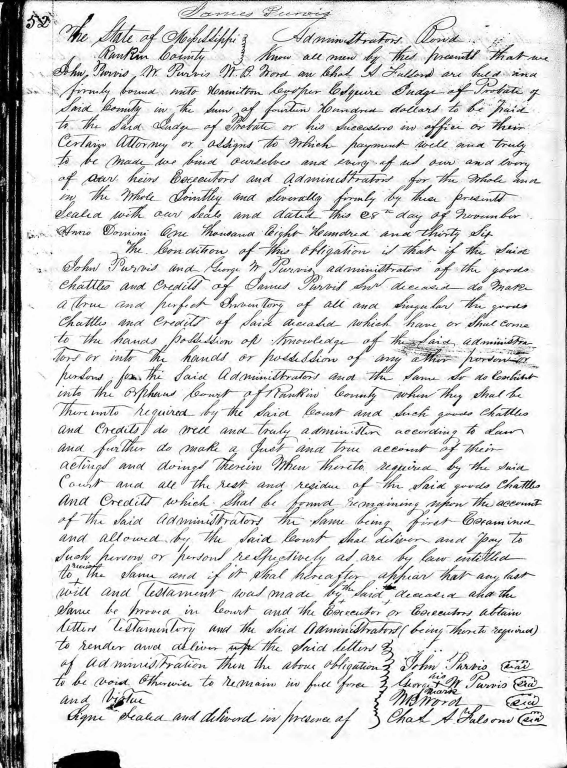 52
James Purvis
The State of Mississippi } Administrators Bond
Rankin County } Know all men by this presents that we
John Purvis, W Purvis W. B. Word an Chas A Fulsom are held and
firmly bound unto Hamilton Cooper Esquire Judge of Probate of
Said County in the Sum of fourteen Hundred dollars to be paid
to the Said Judge of Probate or his Successors in office or their
Certain Attorney or assigns to Which payment well and truly
to be made we bind ourselves and every of us our and every
of our heirs Executors and administrators for the Whole and
in the Whole Jointley and Severally firmly by these presents
Sealed with our Seals and dated this 28th day of November
Anno Domini One Thousand Eight Hundred and thirty Six
The Condition of this obligation is that if the Said
John Purvis and George W Purvis administrators of the goods
Chattles and Credits of James Purvis Snr deceased do make
a true and perfect Inventory of all and Singular the goods
Chattles and Credits of Said deceased which have or Shal come
to the hands possession or Knowledge of the Said administra
tors or into the hands or possession of any other person or
persons for the Said Administrators and the Same So do Exhibit
into the Orphans Court of Rankin County when they Shal be
Thereunto required by the Said Court and Such goods Chattles
and Credits do well and truly administer according to Law
and further do make a Just and true account of their
actings and doings therein When thereto required by the Said
Court and all the rest and residue of the Said goods Chattles
and Credits which Shal be found remaining upon the account
of the Said administrators the Same being first Examined
and allowed by the Said Court Shal deliver and pay to
Such person or persons respectively as are by law entitled
to the Same and if it Shal hereafter appear that any last
will and Testament was made by the Said deceased and the
Same be proved in Court and the Executor or Executors obtain
letters Testamentory and the Said Administrators (being thereto required)
to render and deliver up the Said letters
of administration then the above obligation
to be void Otherwise to remain in full force
and Virtue
Signe Sealed and deliverd in presence of
John Purvis seal
George his + mark W Purvis seal
W B Word seal
Chas A Fulsom seal